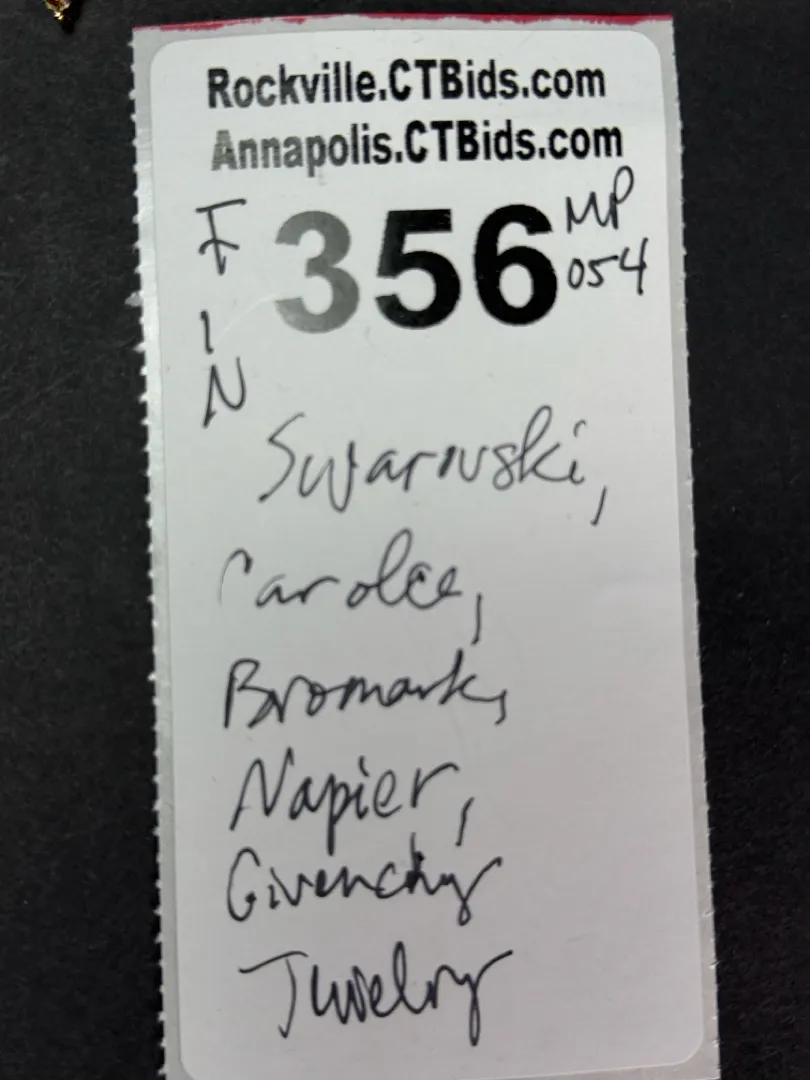 Rockville.CTBids.com
Annapolis.CTBids.com
FIN
356
MP
054
Swarovski,
Carolee,
Bromark,
Napier,
Givenchy
Jewelry